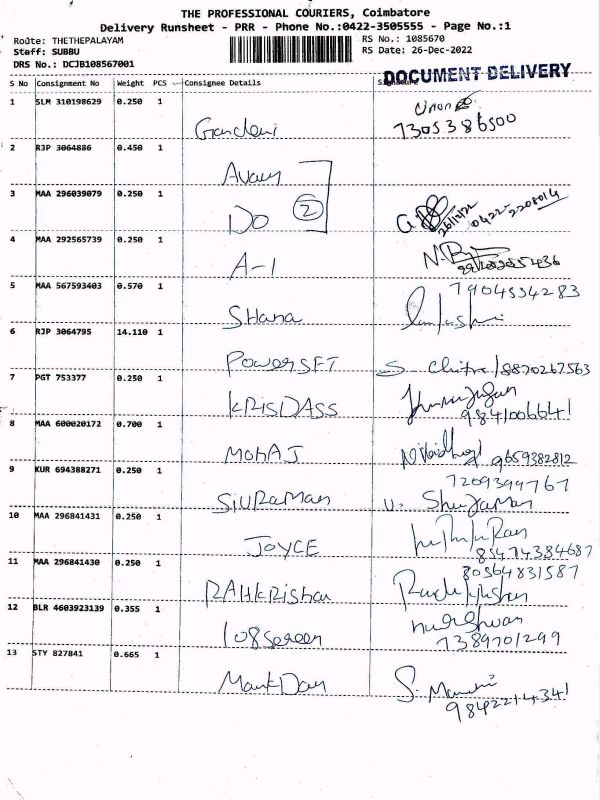 THE PROFESSIONAL COURIERS, Coimbatore
Delivery Runsheet - PRR - Phone No.:0422-3505555 - Page No.:1
Route: THETHEPALAYAM RS No.: 1085670
Staff: SUBBU RS Date: 26-Dec-2022
DRS No.: DCJB108567001
DOCUMENT DELIVERY
S No Consignment No Weight PCS Consignee Details Signature
1 SLM 310198629 0.250 1
7305386500
2 RJP 3064886 0.450 1
3 MAA 296039079 0.250 1
DO 2 26/12/22 0422-2208014
4 MAA 292565739 0.250 1
A-1
5 MAA 567593403 0.570 1 7904554283
SHana
6 RJP 3064795 14.110 1
PowerSFT S Chitra/8870267563
7 PGT 753377 0.250 1
KRISDASS
8 MAA 600020172 0.700 1
MOHAJ 9659382812
9 KUR 694388271 0.250 1 7209399767
SiURaMan
10 MAA 296841431 0.250 1
JOYCE 85474384687
11 MAA 296841430 0.250 1 80564831587
12 BLR 4603923139 0.355 1
108 screen 7389701299
13 STY 827841 0.665 1
9842214341